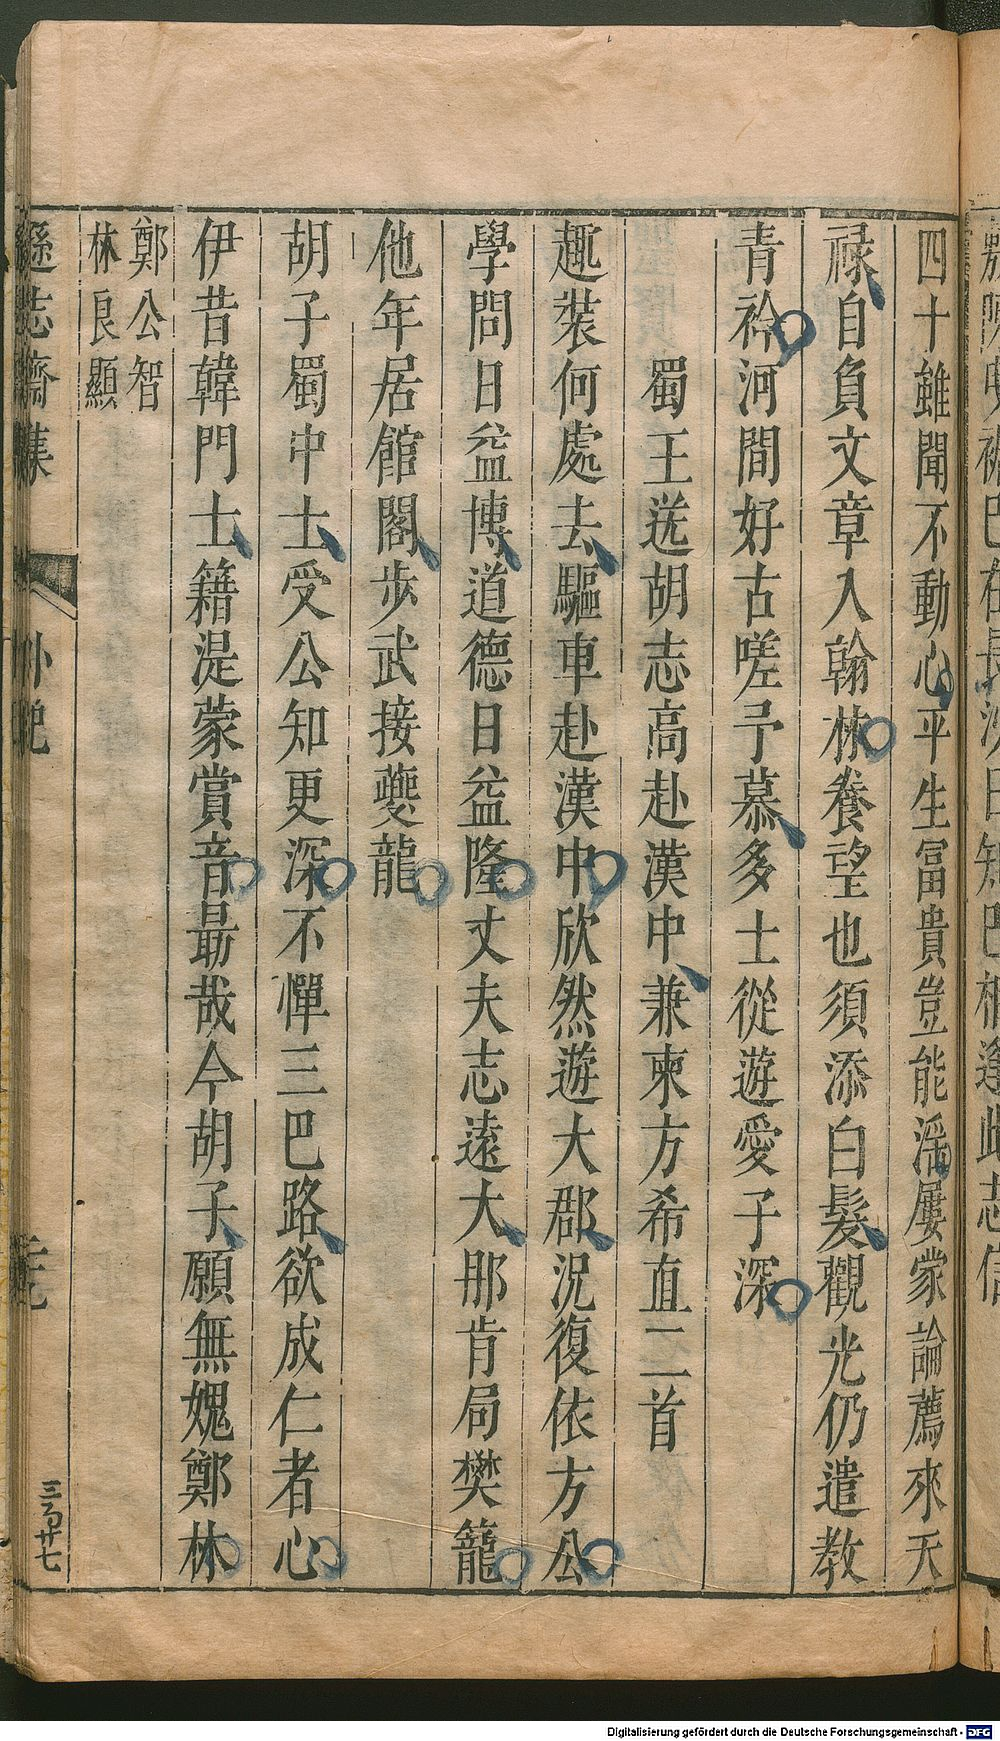 四十雖聞不動心平生富貴豈能滛屢蒙論薦來天
祿自負文章入翰林養望也須添白髮觀光仍遣教
青衿河間好古嗟予慕多士從遊愛子深
蜀王送胡志高赴漢中兼柬方希直二首
趣裝何處去驅車赴漢中欣然遊大郡況復依方公
學問日益博道德日益隆丈夫志遠大那肯局樊籠
他年居館閣步武接夔龍
胡子蜀中士受公知更深不憚三巴路欲成仁者心
伊昔韓門士籍湜蒙賞音勗哉今胡子願無媿鄭林
鄭公智
林良顯
遜志齋集
三百廿七
Digitalisierung gefördert durch die Deutsche Forschungsgemeinschaft - DFG